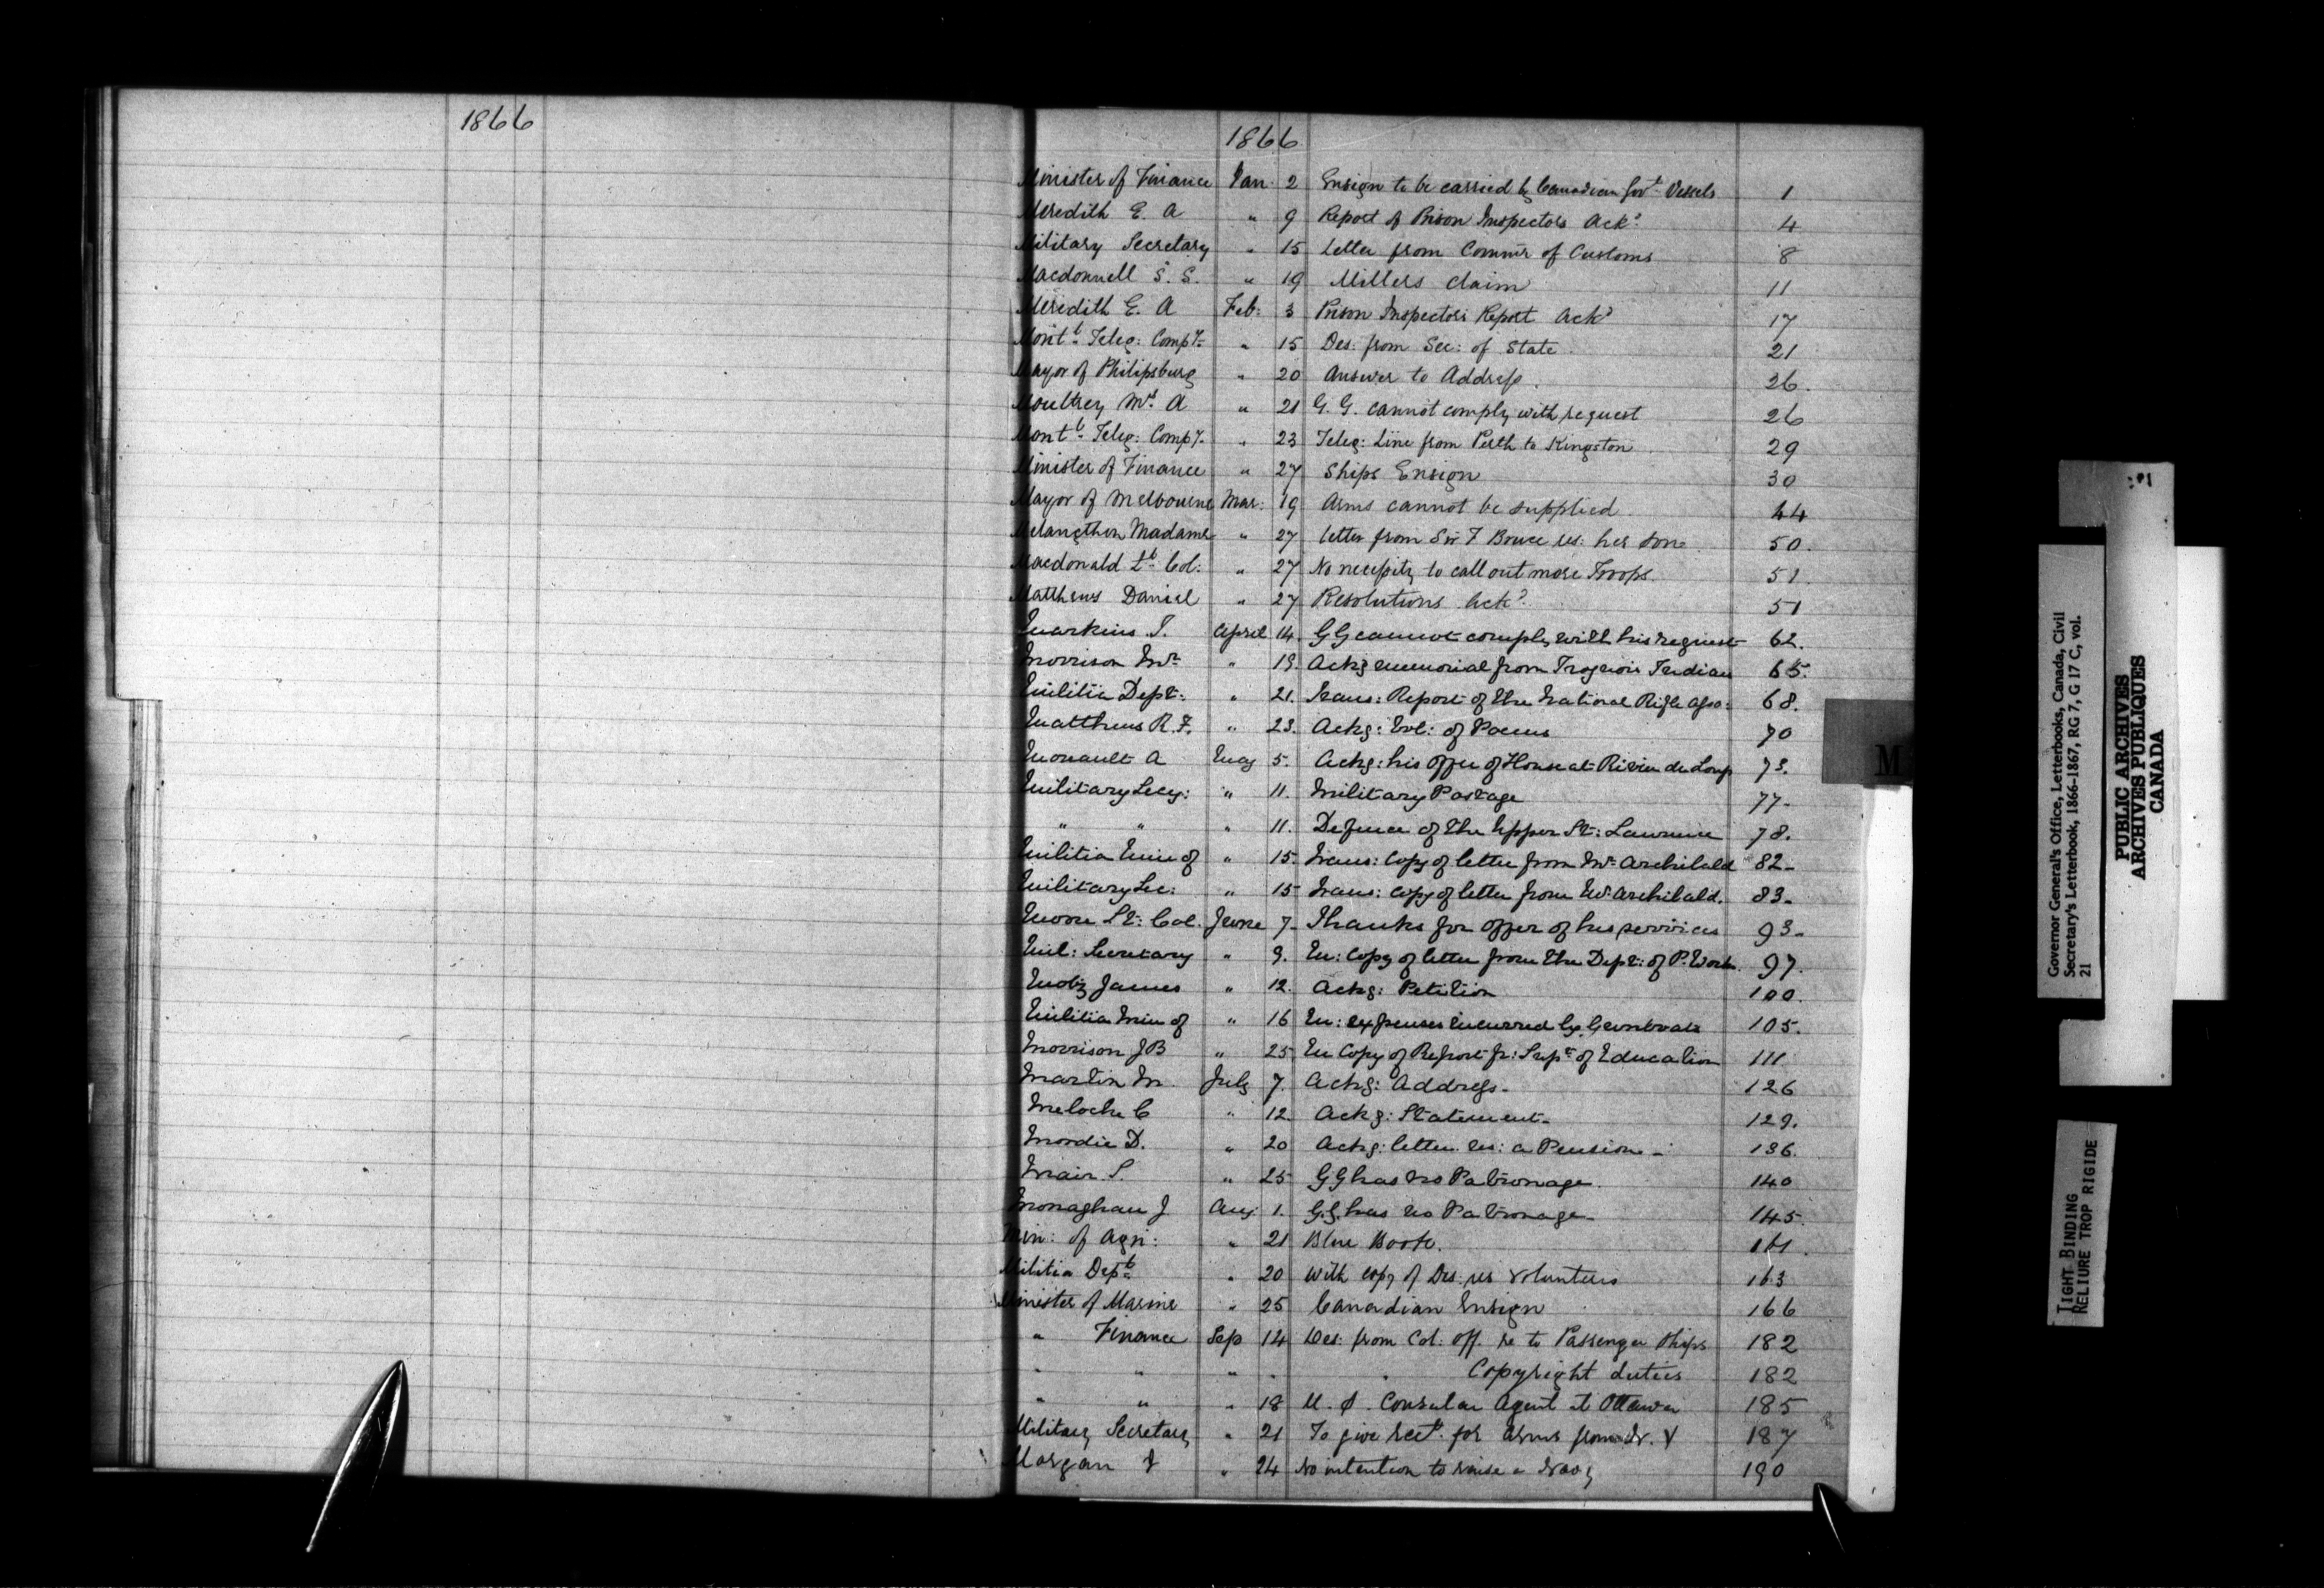 1866
1866
Minister of Finance Jan. 2 Ensign to be carried by Canadian Govt. Vessels 1
Meredith E. A " 9 Report of Prison Inspectors Ackd. 4
Military Secretary " 15 Letter from Commr of Customs 8
Macdonnell S. S. " 19 Millers Claim 11
Meredith E. A Feb: 3 Prison Inspectors Report Ackd 17
Montl. Teleg: Compy. " 15 Des: from Sec: of State 21
Mayor of Philipsburg " 20 Answer to Address. 26.
Moultrey A " 21 G. G. cannot comply with request 26
Montl. Teleg: Compy. " 23 Teleg: Line from Perth to Kingston 29
Minister of Finance " 27 Ships Ensign 30
Mayor of Melbourne Mar: 19 Arms cannot be supplied 44
Melangthon Madame " 27 Letter from Sir F Bruce res: her son 50.
Macdonald Lt. Col: " 27 No necessity to call out more Troops 51.
Matthews Daniel " 27 Resolutions Ackd. 51
Markins T. April 14. GG cannot comply with his request 62.
Morrison Mr. " 19. Ackg memorial from Iroquois Indians 65.
Militia Dept: " 21. Trans: Report of the National Rifle Asso: 68.
Matthews R. F. " 23. Ackg: Vol: of Poems 70
Monault A May 5. Ackg: his offer of House at Riviere du Loup 73.
Military Secy: " 11. Military Postage 77-
" " " 11. Defence of the Upper St: Lawrence 78.
Militia Min of " 15. Trans: Copy of letter from Mr. Archibald 82-
Military Sec: " 15 Trans: Copy of letter from Mr. Archibald. 83-
Moore Lt: Col. June 7- Thanks for offer of his services 93-
Mil: Secretary " 9. En: Copy of letter from the Dept: of P. Works 97.
Motz James " 12. Ackg: Petition 100.
Militia Min of " 16 En: expenses incurred by Gunboats 105.
Morrison J B " 25 En Copy of Report fr: Supt. of Education 111
Martin M. July 7. Ackg: Address- 126
Meloche C " 12. Ackg: Statement- 129.
Mordie D. " 20 Ackg: letter res: a Pension- 136.
Mair S. " 25 GG has no Patronage. 140
Monaghan J Aug 1. G.G. has no Patronage- 145.
Min: of Agri: " 21 Blue Book. 161.
Militia Dept. " 20 With copy of Des. res Volunteers 163
Minister of Marine " 25 Canadian Ensign 166
" Finance Sep 14 Des: from Col: Off. re to Passenger Ships 182
" " " " " Copyright duties 182
" " " 18 U. S. Consular Agent at Ottawa 185
Military Secretary " 21 To give rect. for Arms from 187
Morgan J " 24 No intention to raise a 190
M
Governor General's Office, Letterbooks, Canada, Civil
Secretary's Letterbook, 1866-1867, RG 7, G 17 C, vol.
21
PUBLIC ARCHIVES
ARCHIVES PUBLIQUES
CANADA
TIGHT BINDING
RELIURE TROP RIGIDE